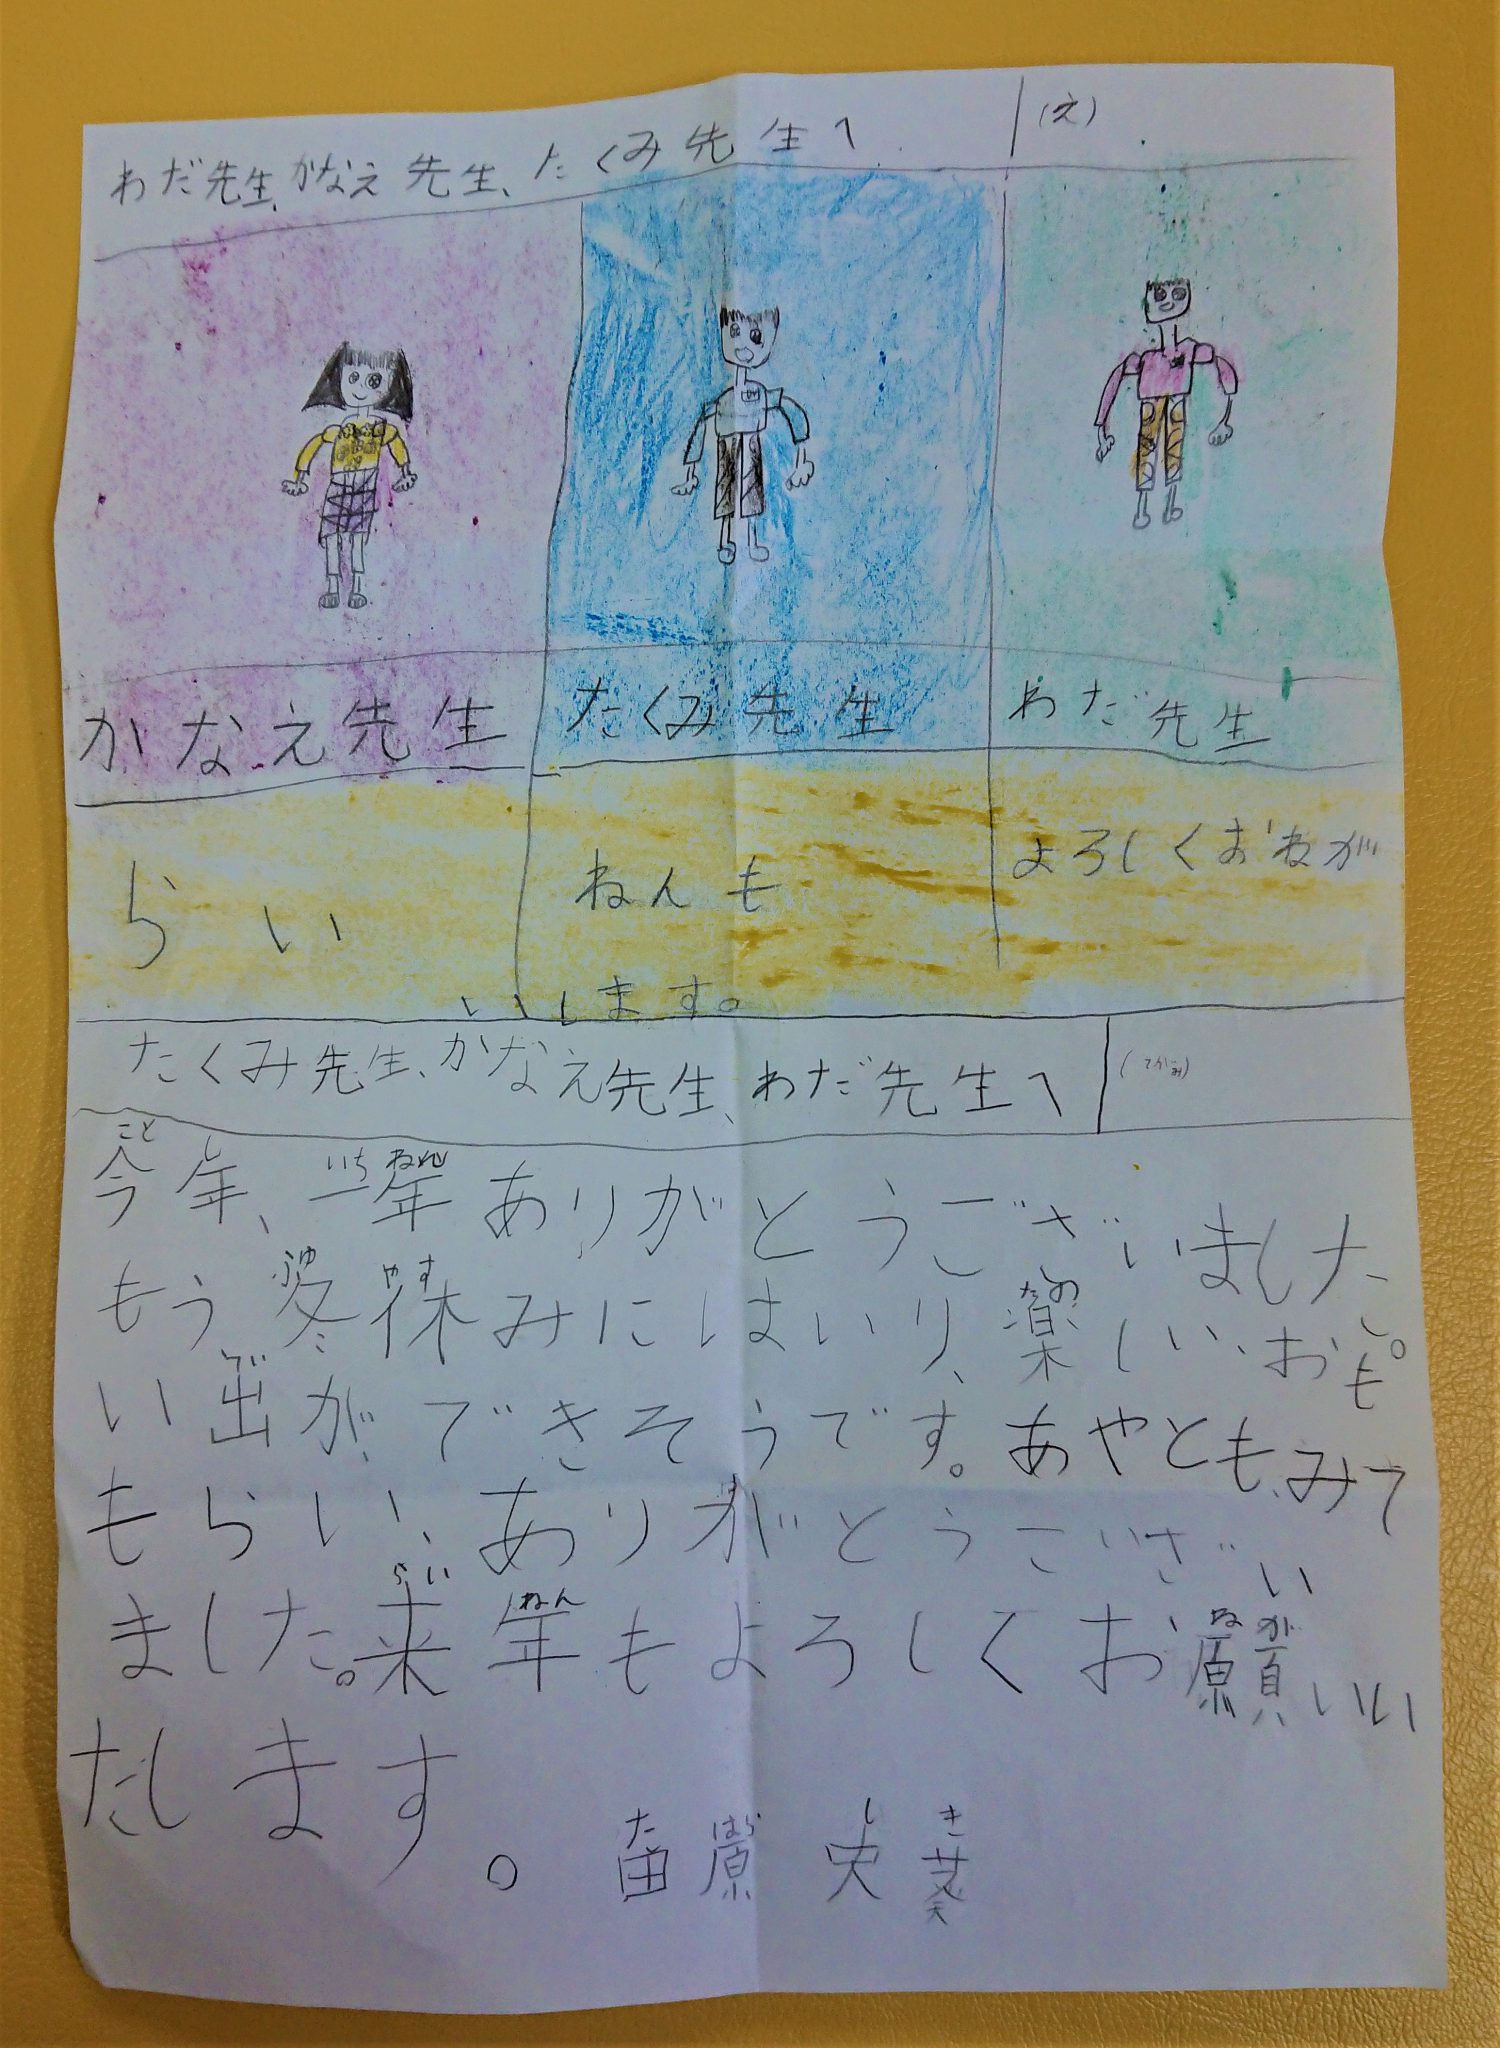 わだ先生、かなえ先生、たくみ先生へ
(え)
かなえ先生
たくみ先生
わだ先生
らい
ねんも
よろしくおねが
いします。
たくみ先生、かなえ先生、わだ先生へ
(てがみ)
こと し いち ねん
今年、一年ありがとうございました。
ふゆ やす たの
もう、冬休みにはいり、楽しい、おも
で
い出が、できそうです。あやとも、みて
もらい、ありがとうございい
らい ねん ねが
ました。来年もよろしくお願いい
たします。
た はら し き
田原 史葵